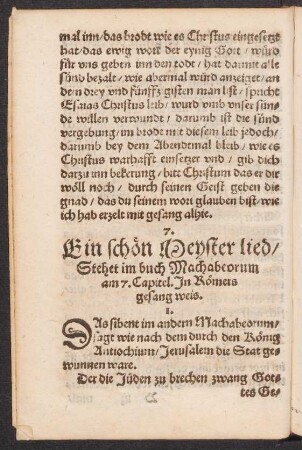 mal inn/das brodt wie es Christus eingesetzt
hat/das ewig wort der eynig Gott/würd
für uns geben inn den todt/hat damit alle
sünd bezalt/wie abermal würd anzeiget/an
dem drey vnd fünfftzgisten man list/spricht
Esaias Christus leib/wurd vmb vnser sün-
de willen verwundt/darumb ist die sünd
vergebung/im brodt mit diesem leib jedoch/
darumb bey dem Abendtmal bleib/wie es
Christus warhafft einsetzet vnd/gib dich
dartzu inn bekerung/bitt Christum das er die
wöll noch/durch seinen Geist geben die
gnad/das du seinem wort glauben bist/wie
ich hab erzelt mit gesang alhie.
7.
Ein schön Meyster lied/
Stehet im buch Machabeorum
am 7. Capitel. In Römers
gesang weis.
1.
DAs sibent im andern Machabeorum/
sagt wie nach dem durch den König
Antiochium/Jerusalem die Stat ge-
wunnen ware.
Der die Jüden zu brechen zwang Got-
tes Ge-